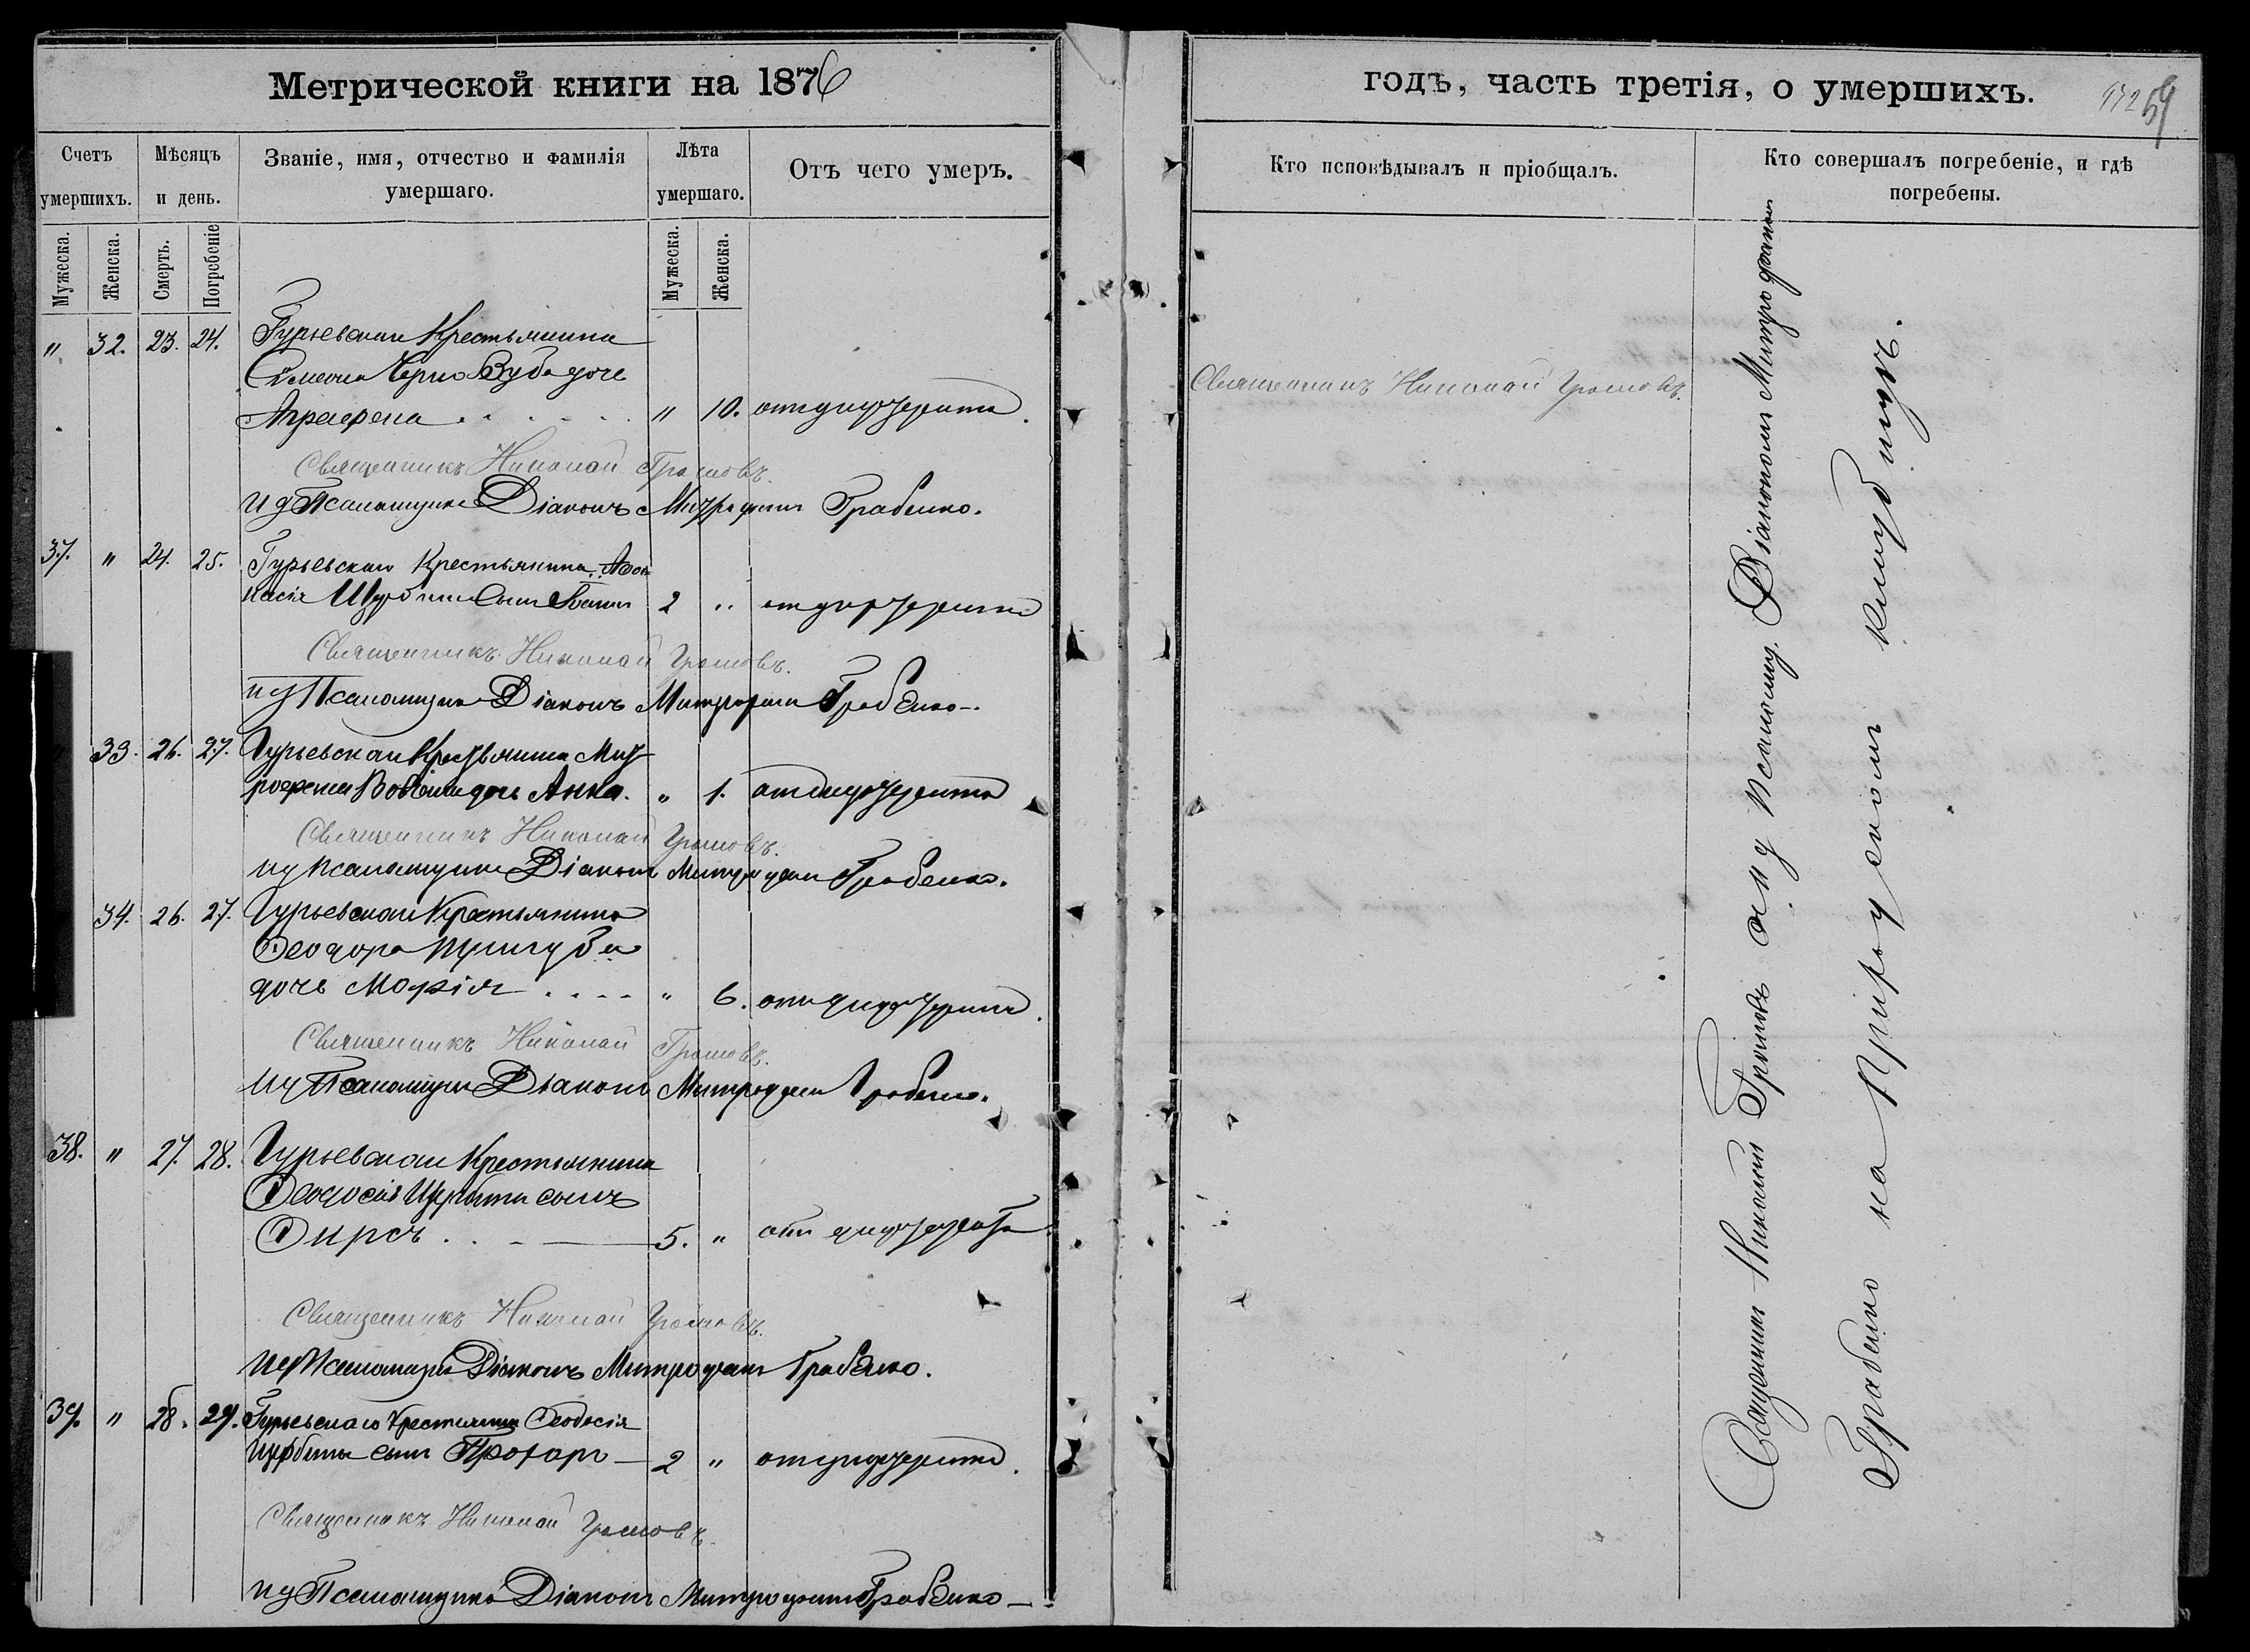 Метрической книги на 1876
годъ, часть третія, о умершихъ.
59
Счетъ умершихъ.
Мѣсяцъ и день.
Званіе, имя, отчество и фамилія умершаго.
Лѣта умершаго.
Отъ чего умеръ.
Кто исповѣдывалъ и пріобщалъ.
Кто совершалъ погребеніе, и гдѣ погребены.
Мужеска.
Женска.
Смерть.
Погребеніе
Мужеска.
Женска.
" 32. 23. 24. Гурьевскаго Крестьянина
Симеона Чернозуба дочь
Агрефена " 10. отъ дифтерита
Священникъ Николай Громовъ.
Священникъ Николай Громовъ.
и д Псаломщика Діаконъ Митрофанъ Грабенко.
37. " 24. 25. Гурьевскаго Крестьянина Афа
насія сынъ 2 " отъ дифтерита
Священникъ Николай Громовъ.
и д Псаломщика Діаконъ Митрофанъ Грабенко.
33. 26. 27. Гурьевскаго Крестьянина Мит
рофана дочь Анна. " 1. отъ дифтерита
Священникъ Николай Громовъ.
и д Псаломщика Діаконъ Митрофанъ Грабенко.
34. 26. 27. Гурьевскаго Крестьянина
Ѳеодора
дочь Марія " 6. отъ дифтерита
Священникъ Николай Громовъ.
и д Псаломщика Діаконъ Митрофанъ Грабенко.
38. " 27. 28. Гурьевскаго Крестьянина
Ѳеодосія Щербины сынъ
Ѳирсъ 5. " отъ дифтерита
Священникъ Николай Громовъ.
и д Псаломщика Діаконъ Митрофанъ Грабенко.
39. " 28. 29. Гурьевскаго Крестьянина Ѳеодосія
Щербины сынъ 2 " отъ дифтерита
Священникъ Николай Громовъ.
и д Псаломщика Діаконъ Митрофанъ Грабенко
Священникъ Николай Громовъ съ и д Псаломщ. Діакономъ Митрофаномъ
Грабенко на кладбищѣ.